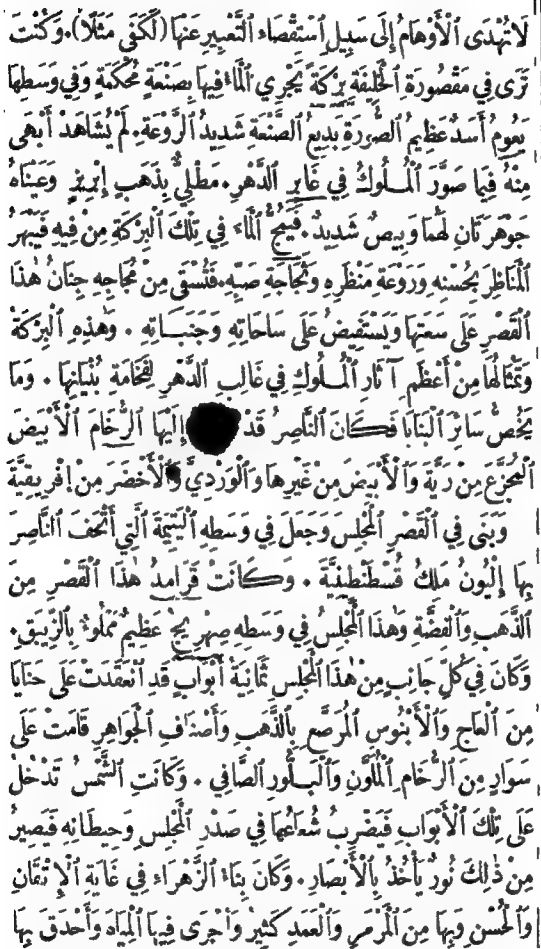 لَا تُهْدَى ٱلْأَوْهَامُ إِلَى سَبِيلِ ٱسْتِقْصَاءِ ٱلتَّعْبِيرِ عَنْهَا (لَكَفَى مَثَلًا). وَكُنْتَ
تَرَى فِي مَقْصُورَةِ ٱلْخَلِيفَةِ بِرْكَةً يَجْرِي ٱلْمَاءُ فِيهَا بِصَنْعَةٍ مُحْكَمَةٍ وَفِي وَسَطِهَا
يَعُومُ أَسَدٌ عَظِيمُ ٱلصُّورَةِ بَدِيعُ ٱلصَّنْعَةِ شَدِيدُ ٱلرَّوْعَةِ. لَمْ يُشَاهَدْ أَبْهَى
مِنْهُ فِيمَا صَوَّرَ ٱلْمُلُوكُ فِي غَابِرِ ٱلدَّهْرِ. مَطْلِيٌّ بِذَهَبٍ إِبْرِيزٍ وَعَيْنَاهُ
جَوْهَرَتَانِ لَهُمَا وَبِيصٌ شَدِيدٌ. فَيَمُجُّ ٱلْمَاءَ فِي تِلْكَ ٱلْبِرْكَةِ مِنْ فِيهِ فَيَبْهَرُ
ٱلْمَنَاظِرَ بِحُسْنِهِ وَرَوْعَةِ مَنْظَرِهِ وَثَجَاجَةِ صَبِّهِ. فَتُسْقَى مِنْ مُجَاجِهِ جِنَانُ هٰذَا
ٱلْقَصْرِ عَلَى سَعَتِهَا وَيَسْتَفِيضُ عَلَى سَاحَاتِهِ وَجَنَبَاتِهِ. وَهٰذِهِ ٱلْبِرْكَةُ
وَتِمْثَالُهَا مِنْ أَعْظَمِ آثَارِ ٱلْمُلُوكِ فِي غَالِبِ ٱلدَّهْرِ لِفَخَامَةِ بُنْيَانِهَا. وَمَا
يَخُصُّ سَائِرَ ٱلْبَنَايَا فَكَانَ ٱلنَّاصِرُ قَدْ إِلَيْهَا ٱلرُّخَامَ ٱلْأَبْيَضَ
ٱلْمُجَزَّعَ مِنْ رَيَّةَ وَٱلْأَبْيَضَ مِنْ غَيْرِهَا وَٱلْوَرْدِيَّ وَٱلْأَخْضَرَ مِنْ إِفْرِيقِيَّةَ
وَبَنَى فِي ٱلْقَصْرِ ٱلْمَجْلِسَ وَجَعَلَ فِي وَسَطِهِ ٱلْيَتِيمَةَ ٱلَّتِي أَتْحَفَ ٱلنَّاصِرَ
بِهَا إِلْيُونُ مَلِكُ قُسْطَنْطِينِيَّةَ. وَكَانَتْ قَرَامِدُ هٰذَا ٱلْقَصْرِ مِنَ
ٱلذَّهَبِ وَٱلْفِضَّةِ وَهٰذَا ٱلْمَجْلِسُ فِي وَسَطِهِ صِهْرِيجٌ عَظِيمٌ مَمْلُوءٌ بِٱلزِّيبَقِ.
وَكَانَ فِي كُلِّ جَانِبٍ مِنْ هٰذَا ٱلْمَجْلِسِ ثَمَانِيَةُ أَبْوَابٍ قَدِ ٱنْعَقَدَتْ عَلَى حَنَايَا
مِنَ ٱلْعَاجِ وَٱلْأَبْنُوسِ ٱلْمُرَصَّعِ بِٱلذَّهَبِ وَأَصْنَافِ ٱلْجَوَاهِرِ قَامَتْ عَلَى
سَوَارٍ مِنَ ٱلرُّخَامِ ٱلْمُلَوَّنِ وَٱلْبَلُّورِ ٱلصَّافِي. وَكَانَتِ ٱلشَّمْسُ تَدْخُلُ
عَلَى تِلْكَ ٱلْأَبْوَابِ فَيَضْرِبُ شُعَاعُهَا فِي صَدْرِ ٱلْمَجْلِسِ وَحِيطَانِهِ فَيَصِيرُ
مِنْ ذٰلِكَ نُورٌ يَأْخُذُ بِٱلْأَبْصَارِ. وَكَانَ بِنَاءُ ٱلزَّهْرَاءِ فِي غَايَةِ ٱلْإِتْقَانِ
وَٱلْحُسْنِ وَبِهَا مِنَ ٱلْمَرْمَرِ وَٱلْعَمَدِ كَثِيرٌ وَأَجْرَى فِيهَا ٱلْمِيَاهَ وَأَحْدَقَ بِهَا